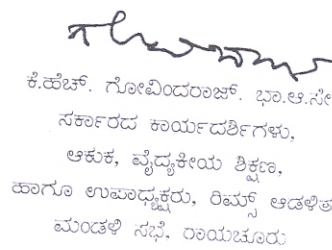 ಕೆ.ಹೆಚ್. ಗೋವಿಂದರಾಜ್. ಭಾ.ಆ.ಸೇ
ಸರ್ಕಾರದ ಕಾರ್ಯದರ್ಶಿಗಳು,
ಆಕುಕ, ವೈದ್ಯಕೀಯ ಶಿಕ್ಷಣ,
ಹಾಗೂ ಉಪಾಧ್ಯಕ್ಷರು, ರಿಮ್ಸ್ ಆಡಳಿತ
ಮಂಡಳಿ ಸಭೆ, ರಾಯಚೂರು